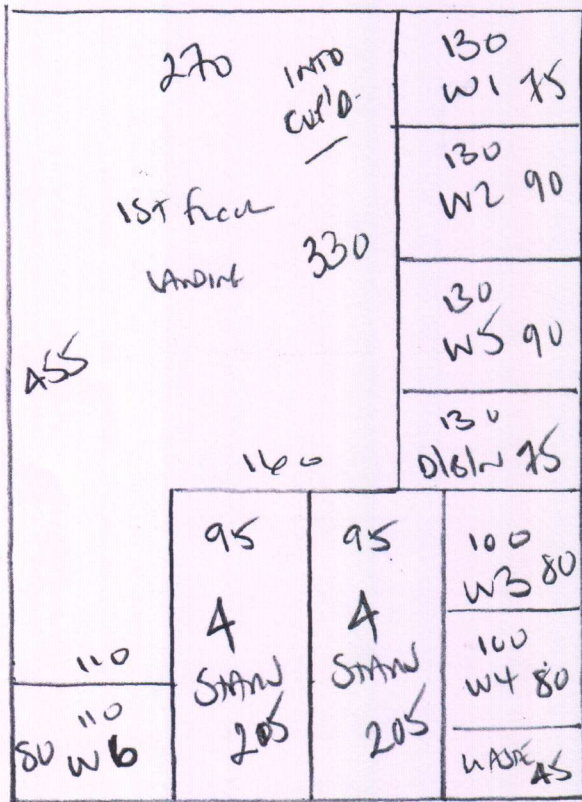 270 INTO
CUP'D
1ST FLOOR
LANDING 330
455
160
110
130
W1 75
130
W2 90
130
W5 90
130
D/B/N 75
95
4
STAIRS
205
95
4
STAIRS
205
100
W3 80
100
W4 80
WASTE 45
110
80 W6